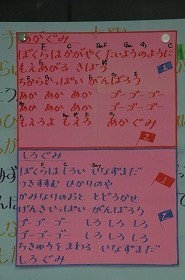 あかぐみ
ぼくらはかがやく たいようのように
もえあがる きぼう
ちからいっぱい がんばろう
あか あか あか ゴーゴーゴー
あか あか あか ゴーゴーゴー
もえろよ もえろ あかぐみ
しろぐみ
ぼくらはしろい いなずまだ
つきすすむ ひかりのや
かみなりのおと とどろかせ
げんきいっぱい がんばろう
ゴーゴーゴー しろ しろ しろ
ゴーゴーゴー しろ しろ しろ
ちきゅうをまわる いなずまだ
しろぐみ